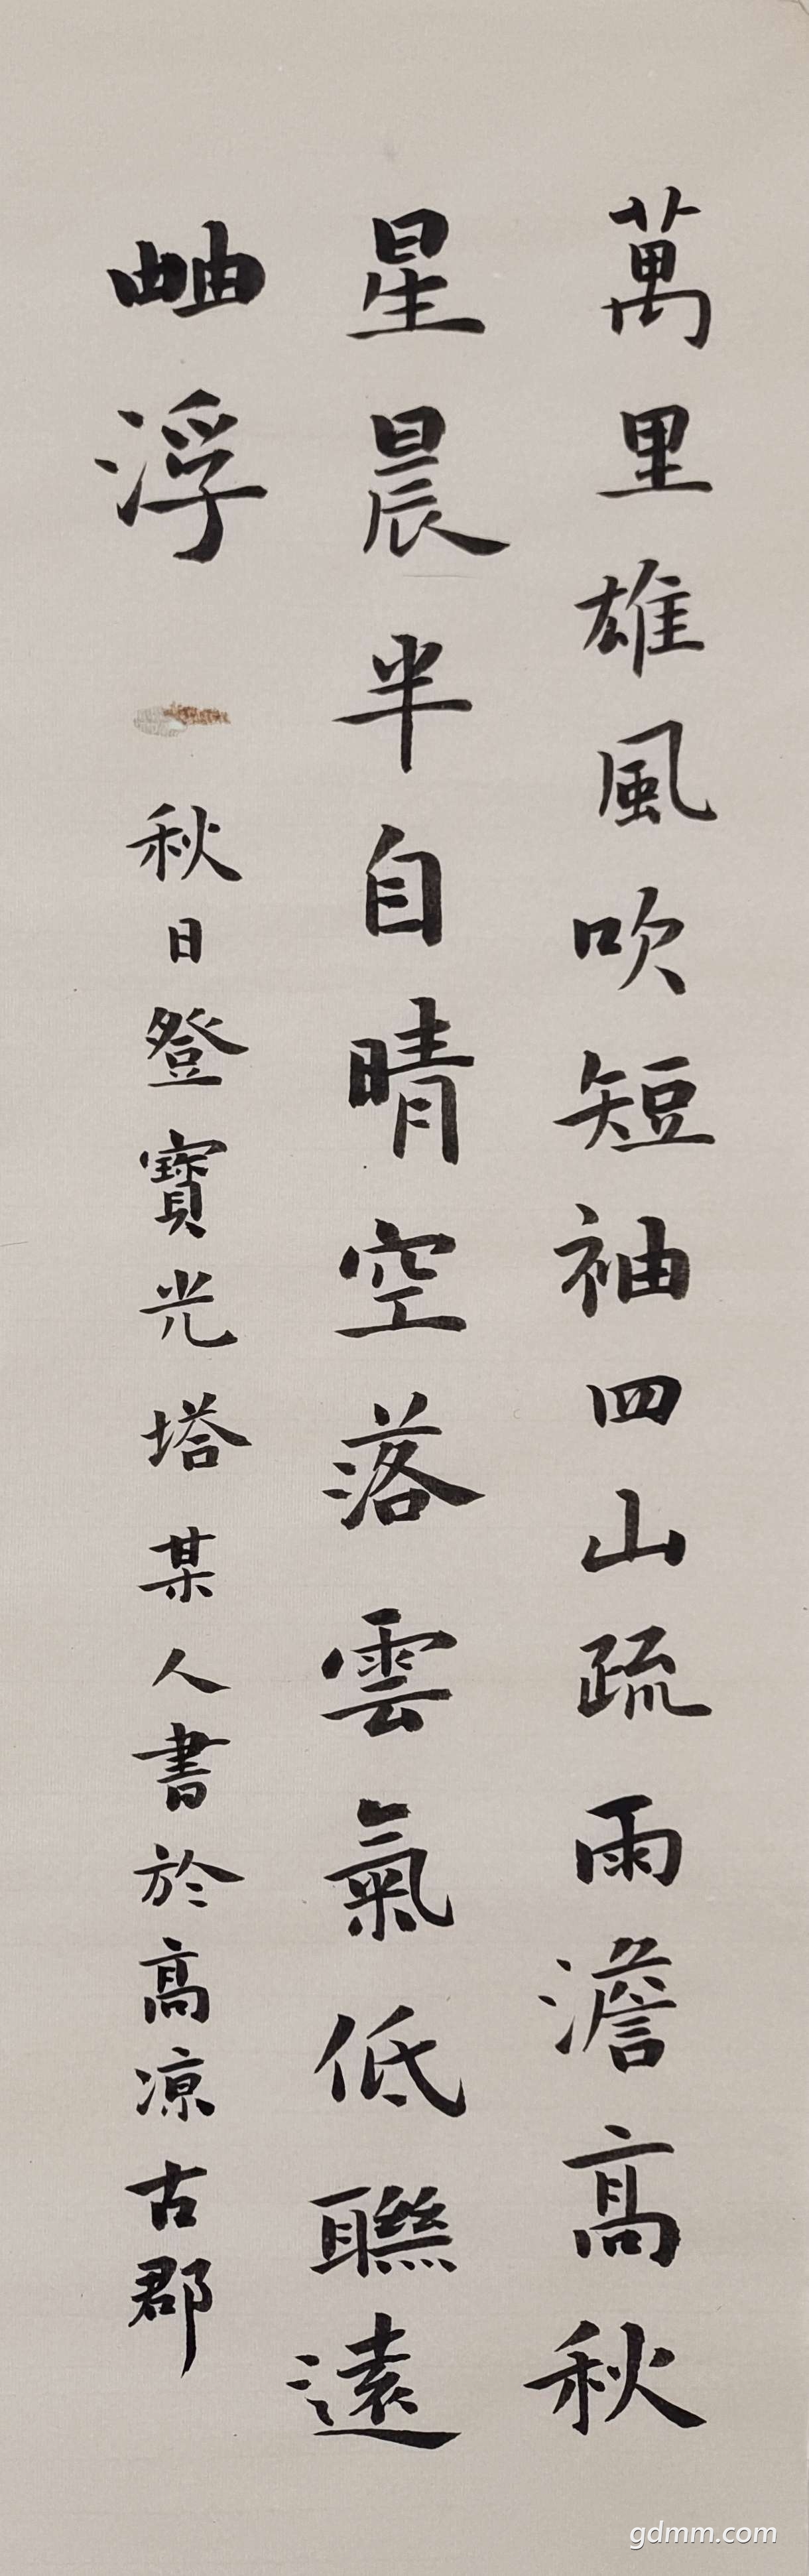 萬里雄風吹短袖四山疏雨澹高秋
星晨半自晴空落雲氣低聯遠
岫浮
秋日登寶光塔某人書於高凉古郡
gdmm.com